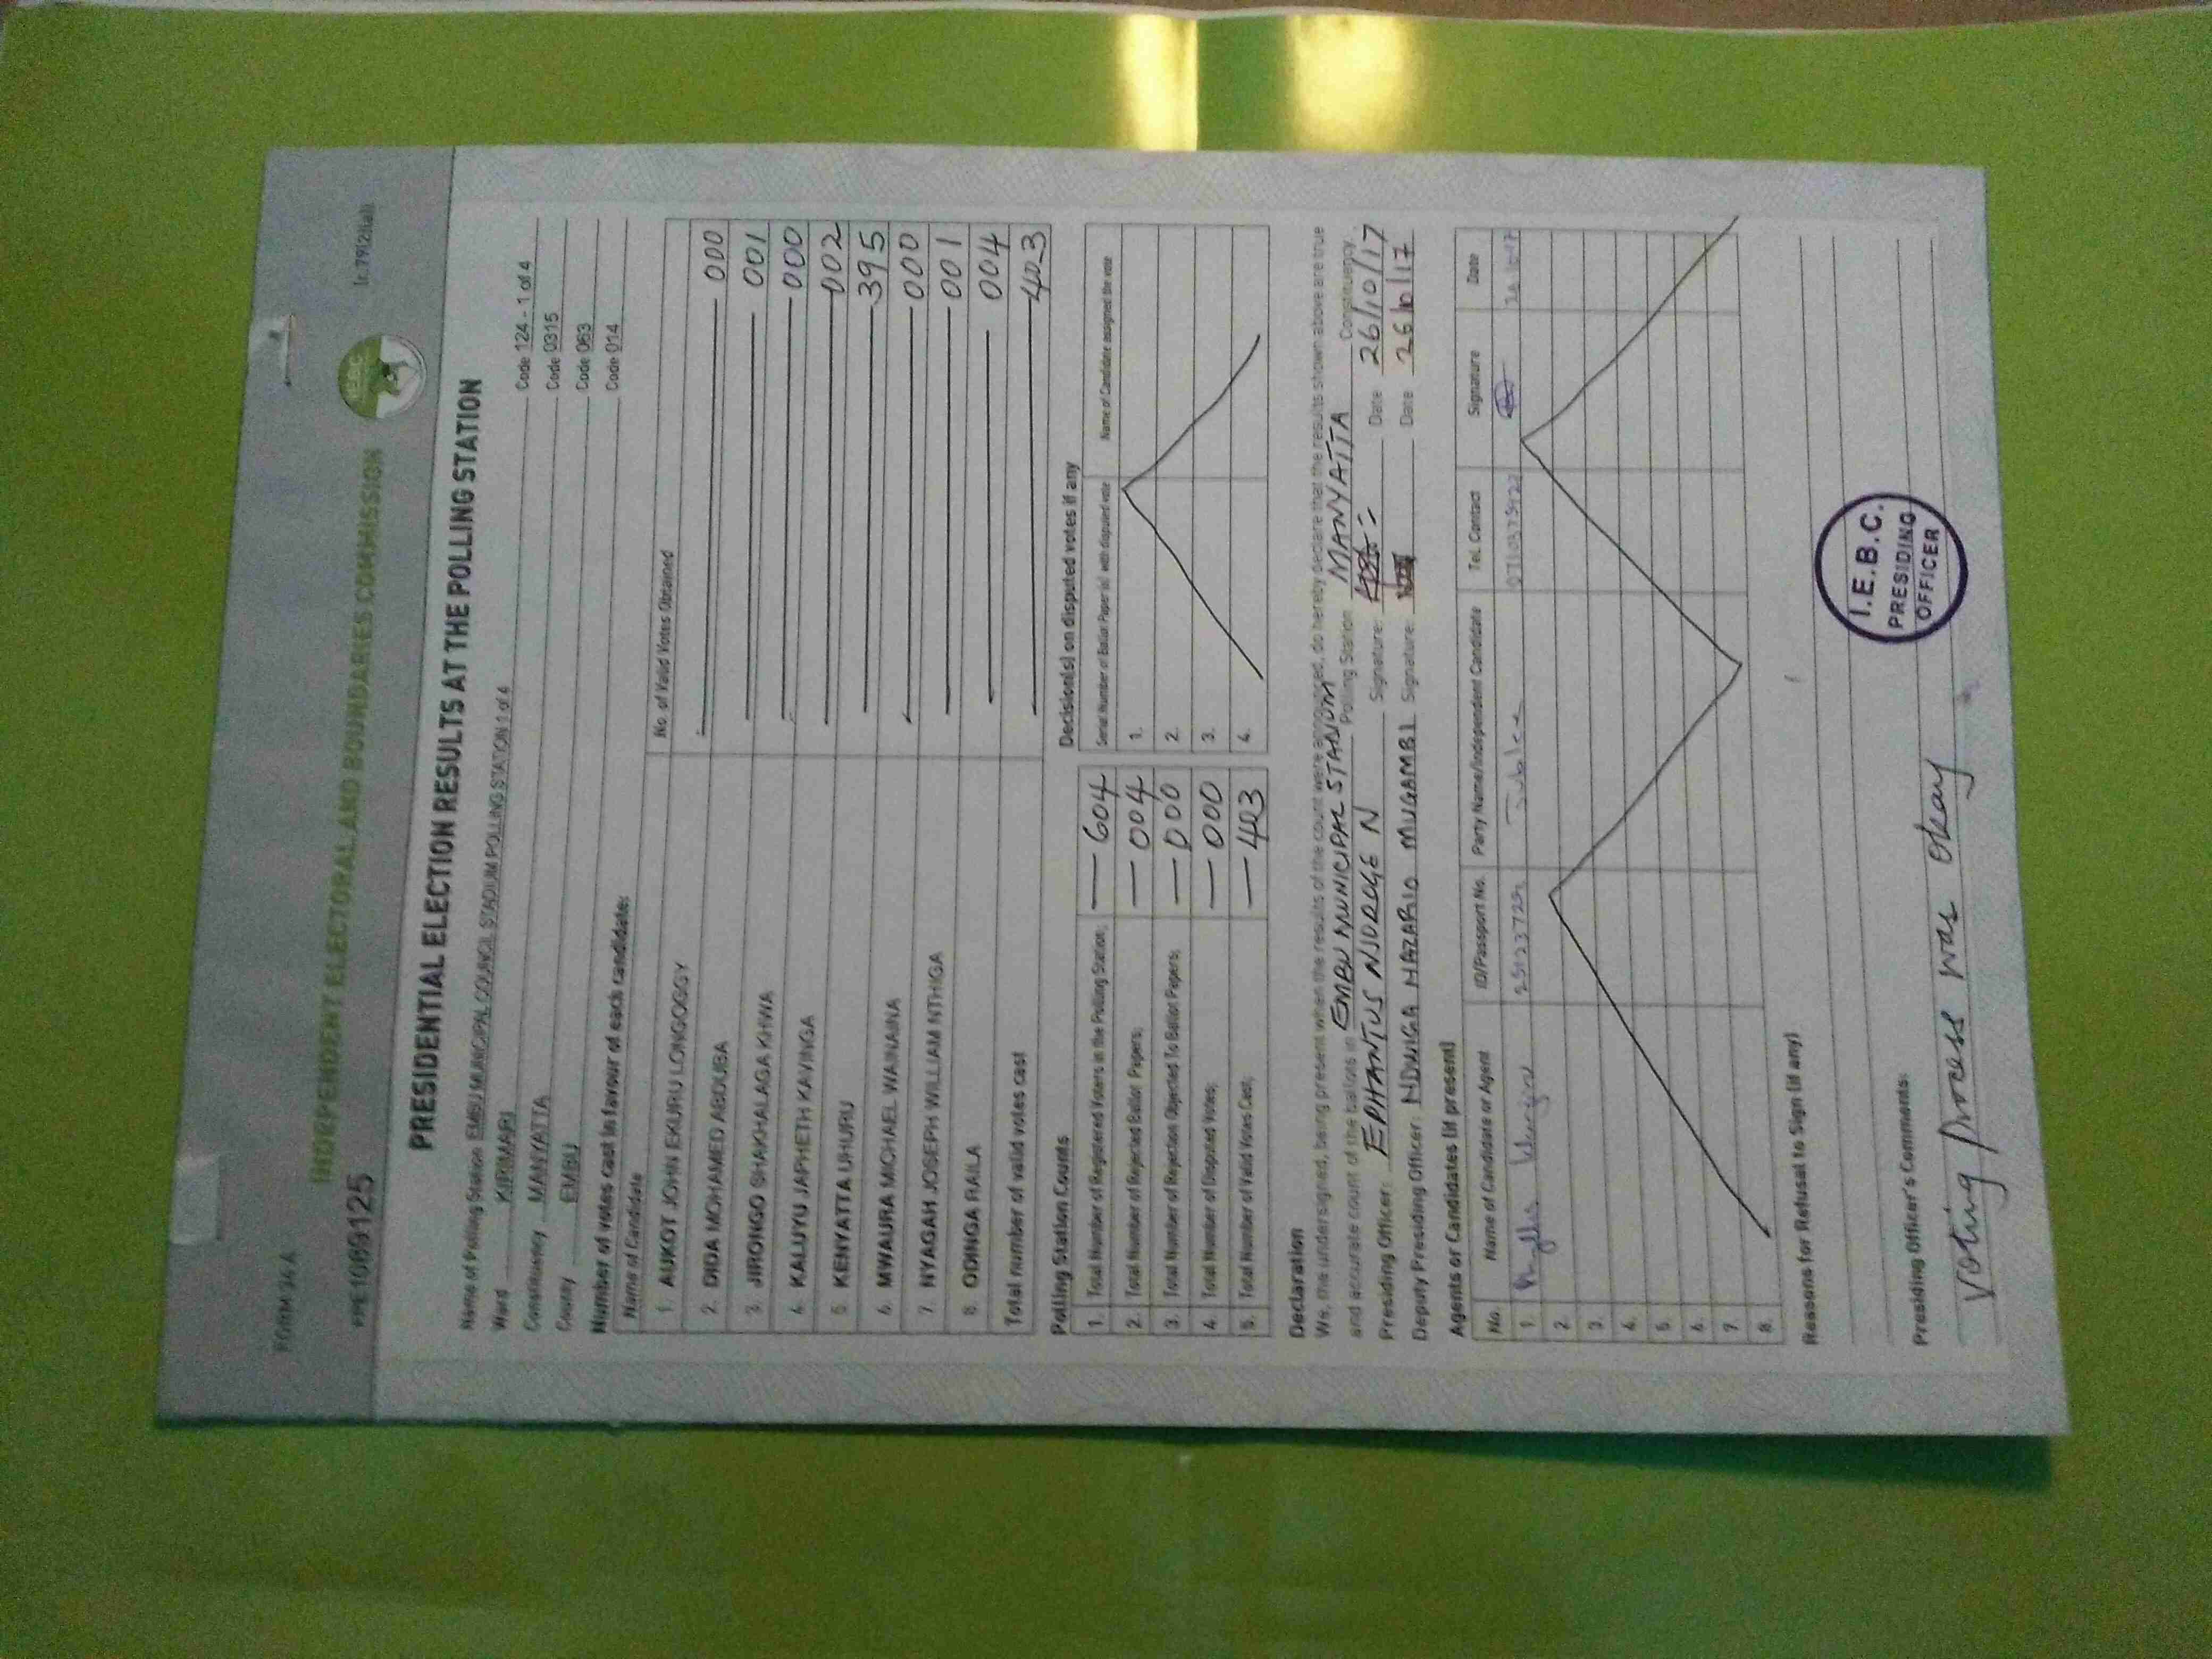 FORM 34 A
INDEPENDENT ELECTORAL AND BOUNDARIES COMMISSION
PRESIDENTIAL ELECTION RESULTS AT THE POLLING STATION
Name of Polling Station EMBU MUNICIPAL COUNCIL STADIUM POLLING STATION 1 of 4 Code 124 - 1 of 4
Ward KIRIMARI Code 0315
Constituency MANYATTA Code 063
County EMBU Code 014
Number of votes cast in favour of each candidate:
Name of Candidate No. of Valid Votes Obtained
1. AUKOT JOHN EKURU LONGOGGY 000
2. DIDA MOHAMED ABDUBA 001
3. JIRONGO SHAKHALAGA KHWA 000
4. KALUYU JAPHETH KAVINGA 002
5. KENYATTA UHURU 395
6. MWAURA MICHAEL WAINAINA 000
7. NYAGAH JOSEPH WILLIAM NTHIGA 001
8. ODINGA RAILA 004
Total number of valid votes cast 403
Polling Station Counts
1. Total Number of Registered Voters in the Polling Station; 604
2. Total Number of Rejected Ballot Papers; 004
3. Total Number of Rejection Objected To Ballot Papers; 000
4. Total Number of Disputed Votes; 000
5. Total Number of Valid Votes Cast; 403
Decision(s) on disputed votes if any
Serial Number of Ballot Paper (s) with disputed vote Name of Candidate assigned the vote
1.
2.
3.
4.
Declaration
We, the undersigned, being present when the results of the count were announced, do hereby declare that the results shown above are true
and accurate count of the ballots in EMBU MUNICIPAL STADIUM Polling Station MANYATTA Constituency.
Presiding Officer: EPHANTUS NJOROGE N Signature: Date 26/10/17
Deputy Presiding Officer: NDWIGA NAZARIO MUGAMBI Signature: Date 26/10/17
Agents or Candidates (if present)
No. Name of Candidate or Agent ID/Passport No. Party Name/Independent Candidate Tel. Contact Signature Date
1. Jubilee
2.
3.
4.
5.
6.
7.
8.
Reasons for Refusal to Sign (if any)
Presiding Officer's Comments:
Voting process was okay
I.E.B.C.
PRESIDING
OFFICER